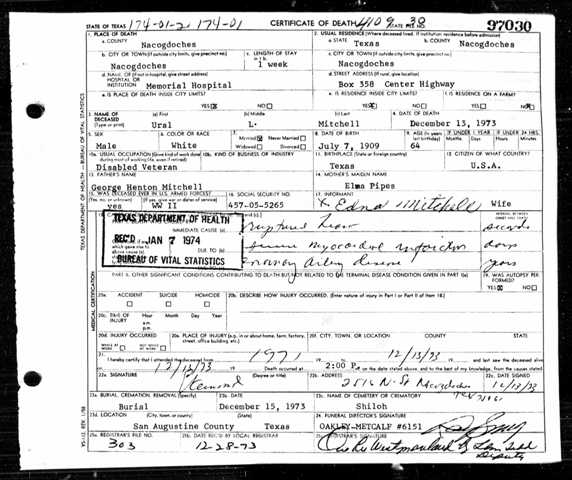 STATE OF TEXAS 174-01-2 174-01 CERTIFICATE OF DEATH 4109 38 97030
1. PLACE OF DEATH
a. COUNTY
Nacogdoches
2. USUAL RESIDENCE (Where deceased lived. If institution residence before admission)
a. STATE
Texas
b. COUNTY
Nacogdoches
b. CITY OR TOWN (If outside city limits, give precinct no.)
Nacogdoches
c. LENGTH OF STAY
1 week
c. CITY OR TOWN (If outside city limits, give precinct no.)
Nacogdoches
d. NAME OF (If not in hospital, give street address)
HOSPITAL OR
INSTITUTION
Memorial Hospital
d. STREET ADDRESS
Box 358 Center Highway
e. IS PLACE OF DEATH INSIDE CITY LIMITS?
YES NO
e. IS RESIDENCE INSIDE CITY LIMITS?
YES NO
f. IS RESIDENCE ON A FARM?
YES NO
3. NAME OF DECEASED (Type or print)
(a) First (b) Middle (c) Last
Ural L. Mitchell
4. DATE OF DEATH
December 13, 1973
5. SEX
Male
6. COLOR OR RACE
White
7. Married Never Married
Widowed Divorced
8. DATE OF BIRTH
July 7, 1909
9. AGE (In years last birthday)
64
IF UNDER 1 YEAR
IF UNDER 24 HRS.
10a. USUAL OCCUPATION (Give kind of work done during most of working life, even if retired)
Disabled Veteran
10b. KIND OF BUSINESS OR INDUSTRY
11. BIRTHPLACE (State or foreign country)
Texas
12. CITIZEN OF WHAT COUNTRY?
U.S.A.
13. FATHER'S NAME
George Henton Mitchell
14. MOTHER'S MAIDEN NAME
Elma Pipes
15. WAS DECEASED EVER IN U.S. ARMED FORCES?
yes WW II
16. SOCIAL SECURITY NO.
457-05-5265
X Edna Mitchell Wife
TEXAS DEPARTMENT OF HEALTH
REC'D JAN 7 1974
BUREAU OF VITAL STATISTICS
IMMEDIATE CAUSE (a)
DUE TO (b)
INTERVAL BETWEEN ONSET AND DEATH
seconds
myocardial infarction
days
artery disease
years
PART II. OTHER SIGNIFICANT CONDITIONS CONTRIBUTING TO DEATH BUT NOT RELATED TO THE TERMINAL DISEASE CONDITION GIVEN IN PART I(a)
19. WAS AUTOPSY PERFORMED?
YES NO
20a. ACCIDENT SUICIDE HOMICIDE
20b. DESCRIBE HOW INJURY OCCURRED. (Enter nature of injury in Part I or Part II of Item 18.)
20c. TIME OF INJURY Hour Month Day Year
a.m.
p.m.
20d. INJURY OCCURRED
WHILE AT WORK NOT WHILE AT WORK
20e. PLACE OF INJURY (e.g. in or about home, farm, factory, street, office building, etc.)
20f. CITY, TOWN, OR LOCATION COUNTY STATE
21. I hereby certify that I attended the deceased from 1971 19 to 12/13/73 19 and last saw the deceased alive
on 12/12/73 Death occurred at 2:00 P.m. on the date stated above, and to the best of my knowledge, from the causes stated.
22a. SIGNATURE
22b. ADDRESS
2516 N. St Nacogdoches
22c. DATE SIGNED
12/18/73
23a. BURIAL, CREMATION, REMOVAL (Specify)
Burial
23b. DATE
December 15, 1973
23c. NAME OF CEMETERY OR CREMATORY
Shiloh
23d. LOCATION (City, town, or county) (State)
San Augustine County Texas
24. FUNERAL DIRECTOR'S SIGNATURE
OAKLEY-METCALF #6151
25a. REGISTRAR'S FILE NO.
303
25b. DATE REC'D BY LOCAL REGISTRAR
12-28-73
25c. REGISTRAR'S SIGNATURE
Deputy